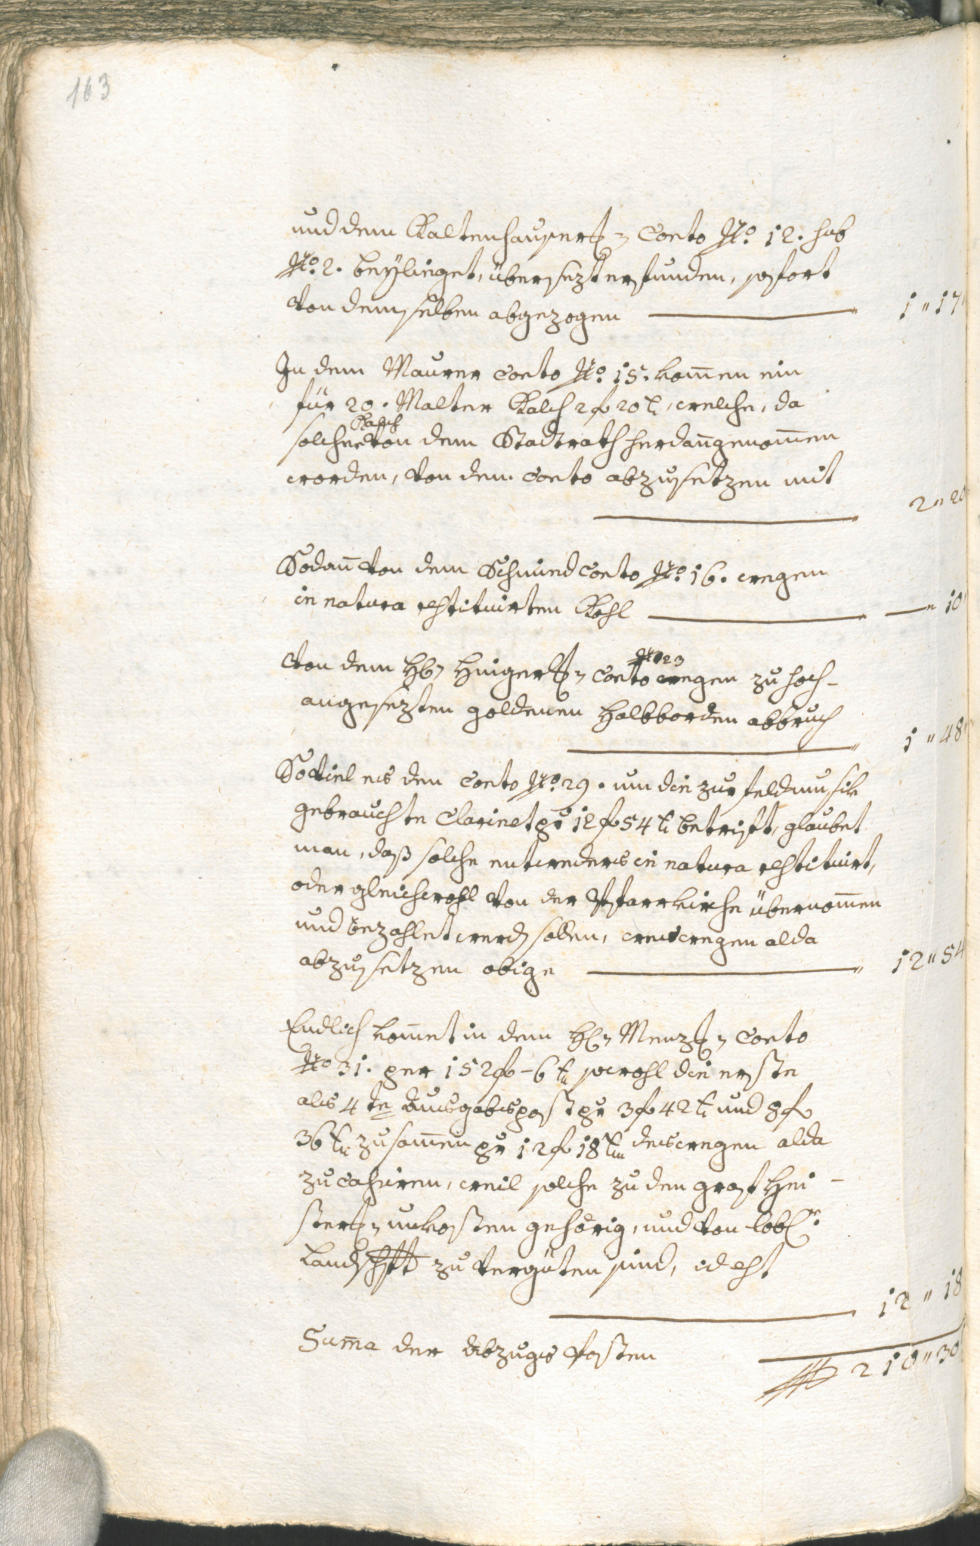 163
und dem Kaltenhauser Conto No: 12. sub
No: 2. beÿlieget, übersezt erfunden, sofort
von demselben abgezogen 1 " 17
In dem Maurer Conto No: 15. kom̄en ein
für 20. Malter Kalch 2 f 20 x, welche, da
solcher Kalch von dem Stadtrath herdan̄genom̄en
worden, von dem Conto abzusetzen mit
2 " 20
Sodan̄ von dem Schmid Conto No: 16. wegen
in natura restituirten Kohl — " 10
von dem Hl: Conto No 23 wegen zu hoch-
angesezten goldenen Halbborden abbruch
1 " 48
Soviel es den Conto No: 29. um die zur Feldmusik
gebrauchte Clarinet pr 12 f 54 x betrift, glaubet
man, daß solche entweders in natura restituirt,
oder gleichwohl von der Pfarrkirche übernom̄en
und bezahlet werden sollen, weswegen alda
abzusetzen obige 12 " 54
Endlich kom̄et in dem Hl: Conto
No 31. per 152 f - 6 x sowohl die erste
als 4te Ausgabspost pr 3 f 42 x und 8 f
36 x zusam̄en pr 12 f 18 x deswegen alda
zu cassiren, weil solche zu den
unkosten gehörig, und von löbl:
Landschft zu vergüten sind, id est
12 " 18
Sum̄a der Abzugs Posten
210 " 30